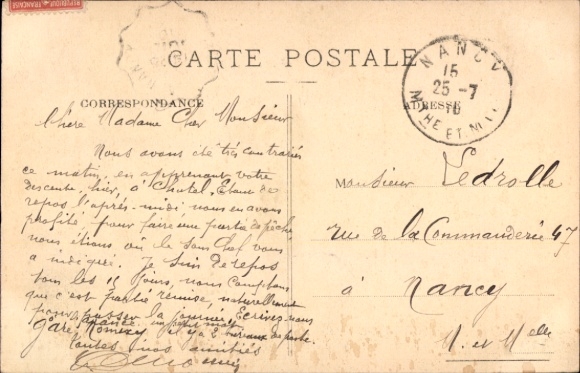 REPUBLIQUE FRANÇAISE
CARTE POSTALE
CORRESPONDANCE
ADRESSE
NANCY
15
25 - 7
10
MTHE ET M
Chère Madame Cher Monsieur
Nous avons été très contrariés
ce matin, en apprenant votre
descente, hier, à Chatel, Etant de
repos l'après-midi nous en avons
profité pour faire une partie de pêche,
nous étions où le Sam Chef vous
a indiqué. Je suis de repos
tous les 15 jours, nous comptons
que c'est partie remise, naturellement
pour passer la journée. Ecrivez-nous
à l'avance un petit mot
Gare Nomexy il y a 2 bureaux de poste.
Toutes nos amitiés
Monsieur Ledrolle
rue de la Commanderie 47
à Nancy
M. et Mlle